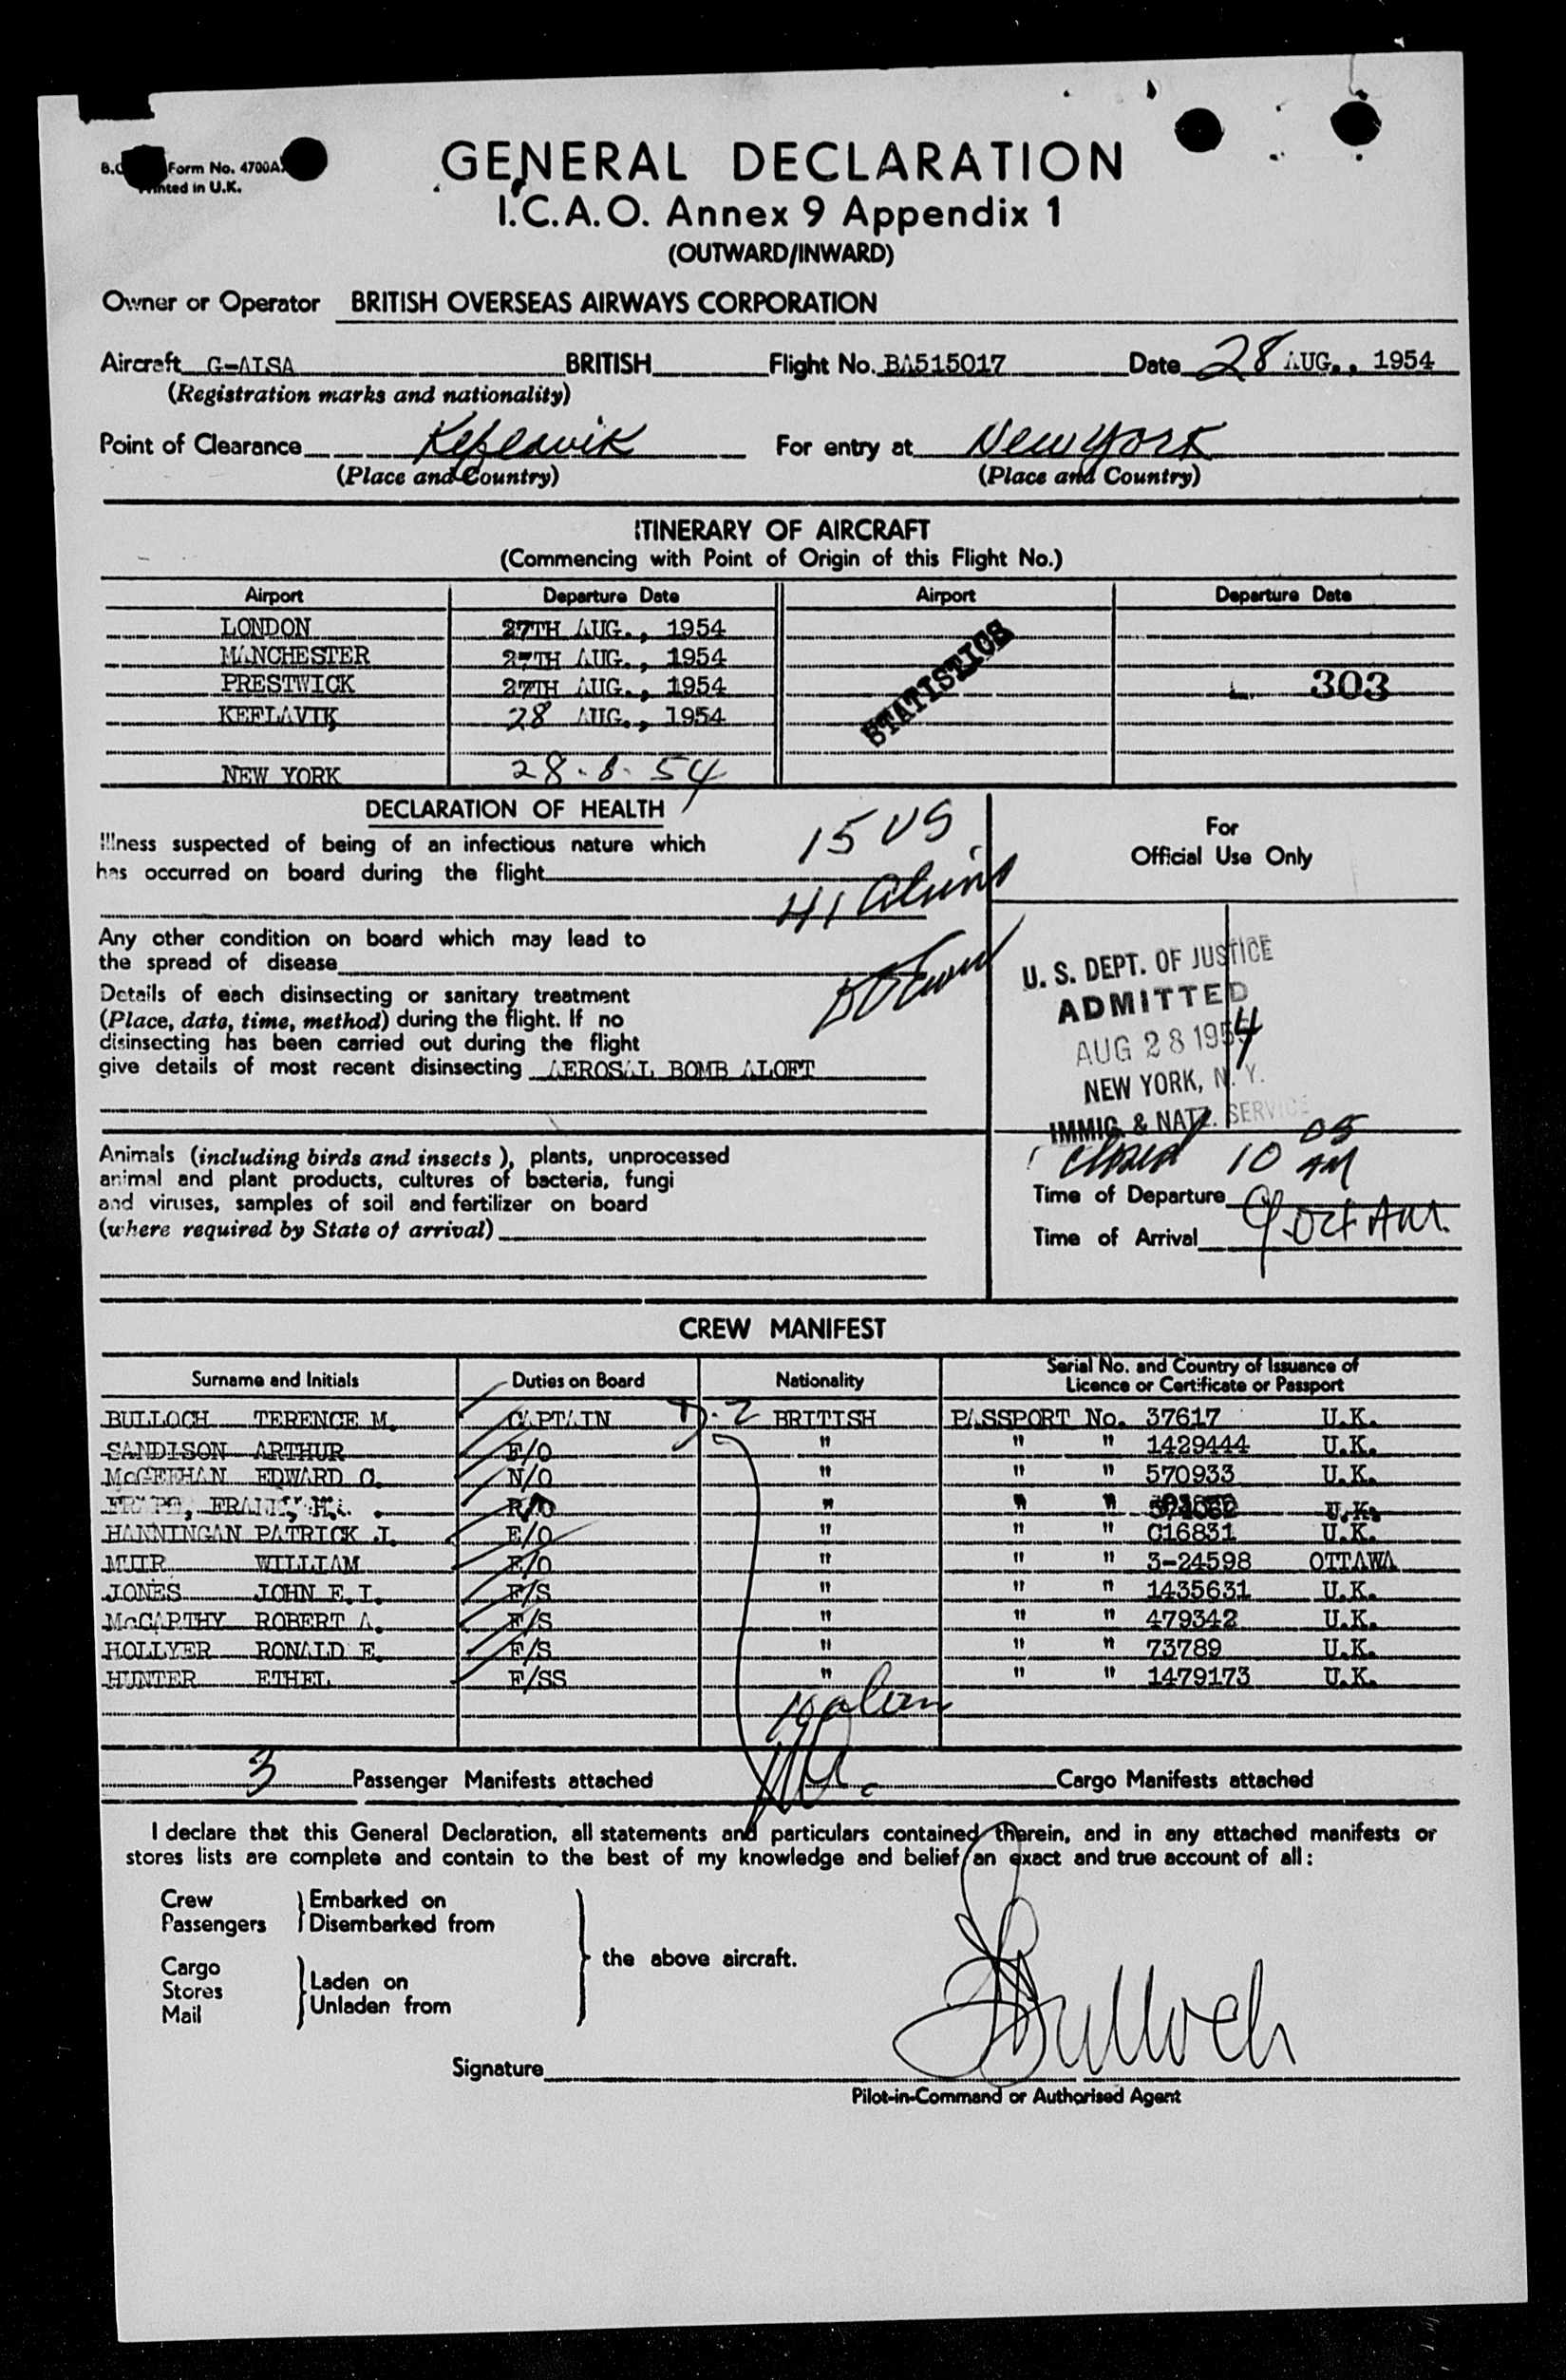 Form No. 4700A
Printed in U.K.
GENERAL DECLARATION
I.C.A.O. Annex 9 Appendix 1
(OUTWARD/INWARD)
Owner or Operator BRITISH OVERSEAS AIRWAYS CORPORATION
Aircraft G-ALSA BRITISH Flight No. BA515017 Date 28 AUG., 1954
(Registration marks and nationality)
Point of Clearance Keflavik For entry at New York
(Place and Country) (Place and Country)
ITINERARY OF AIRCRAFT
(Commencing with Point of Origin of this Flight No.)
Airport Departure Date Airport Departure Date
LONDON 27TH AUG., 1954
MANCHESTER 27TH AUG., 1954
PRESTWICK 27TH AUG., 1954 STATISTICS 303
KEFLAVIK 28 AUG., 1954
NEW YORK 28.8.54
DECLARATION OF HEALTH
Illness suspected of being of an infectious nature which 15 US
has occurred on board during the flight
41 Aliens
Any other condition on board which may lead to
the spread of disease
Details of each disinsecting or sanitary treatment
(Place, date, time, method) during the flight. If no
disinsecting has been carried out during the flight
give details of most recent disinsecting AEROSAL BOMB ALOFT
For
Official Use Only
U. S. DEPT. OF JUSTICE
ADMITTED
AUG 28 1954
NEW YORK, N. Y.
IMMIG. & NATZ. SERVICE
Closed 10 05 AM
Animals (including birds and insects), plants, unprocessed
animal and plant products, cultures of bacteria, fungi
and viruses, samples of soil and fertilizer on board
(where required by State of arrival)
Time of Departure
Time of Arrival 9.04 AM.
CREW MANIFEST
Surname and Initials Duties on Board Nationality Serial No. and Country of Issuance of
Licence or Certificate or Passport
BULLOCH TERENCE M. CAPTAIN D-2 BRITISH PASSPORT No. 37617 U.K.
SANDISON ARTHUR F/O " " " 1429444 U.K.
McGEEHAN EDWARD C. N/O " " " 570933 U.K.
R/O " " " U.K.
HANNINGAN PATRICK J. E/O " " " C16831 U.K.
MUIR WILLIAM E/O " " " 3-24598 OTTAWA
JONES JOHN E.I. F/S " " " 1435631 U.K.
McCARTHY ROBERT A. F/S " " " 479342 U.K.
HOLLYER RONALD E. F/S " " " 73789 U.K.
HUNTER ETHEL F/SS " " " 1479173 U.K.
3 Passenger Manifests attached Cargo Manifests attached
I declare that this General Declaration, all statements and particulars contained therein, and in any attached manifests or
stores lists are complete and contain to the best of my knowledge and belief an exact and true account of all:
Crew Embarked on
Passengers Disembarked from
the above aircraft.
Cargo
Stores Laden on
Mail Unladen from
Signature TBulloch
Pilot-in-Command or Authorised Agent